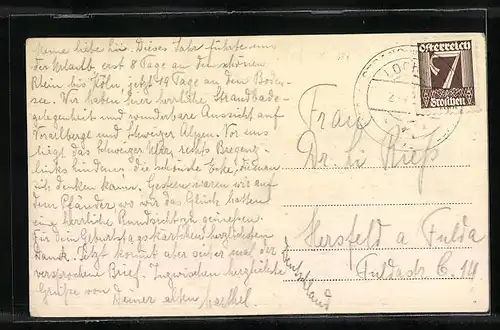 Meine liebe Lisi. Dieses Jahr führte uns
der Urlaub erst 8 Tage an den schönen
Rhein bis Köln, jetzt 19 Tage an den Boden-
see. Wir haben hier herrliche Strandbade-
gelegenheit und wunderbare Aussicht auf
Vorarlberger und Schweizer Alpen. Vor uns
liegt das Schweizer Ufer, rechts Bregenz,
links Lindau. die schönste Ecke, die man
sich denken kann. Gestern waren wir auf
dem Pfänder wo wir das Glück hatten
eine herrliche Rundsicht zu genießen.
Für dein Geburtstagskärtchen herzlichsten
Dank. Jetzt kommt aber sicher mal der
versprochene Brief. Inzwischen herzlichste
Grüße von Deiner alten
Österreich
7
Groschen
LOCH
Frau
Dr. Li Rieß
Hersfeld a Fulda
Fuldastr. C. 14
Deutschland